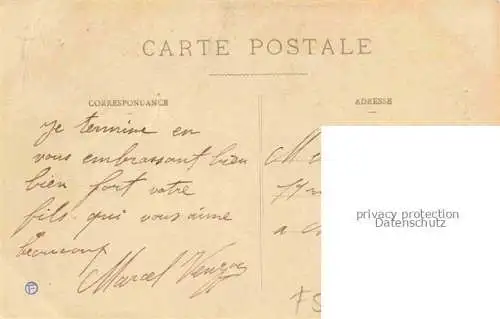 CARTE POSTALE
CORRESPONDANCE
ADRESSE
Je termine en
vous embrassant bien
bien fort votre
fils qui vous aime
beaucoup
Marcel
M
77
a
privacy protection
Datenschutz